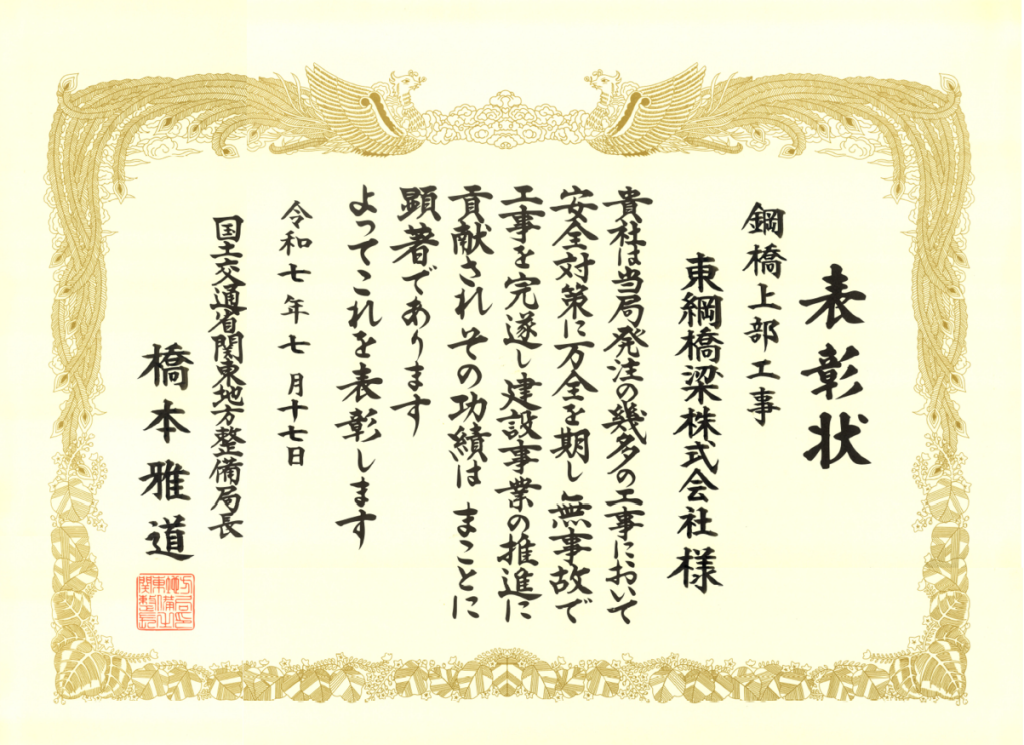 表彰状
鋼橋上部工事
東綱橋梁株式会社 様
貴社は当局発注の幾多の工事において
安全対策に万全を期し 無事故で
工事を完遂し 建設事業の推進に
貢献され その功績は まことに
顕著であります
よってこれを表彰します
令和七年七月十七日
国土交通省関東地方整備局長
橋本雅道